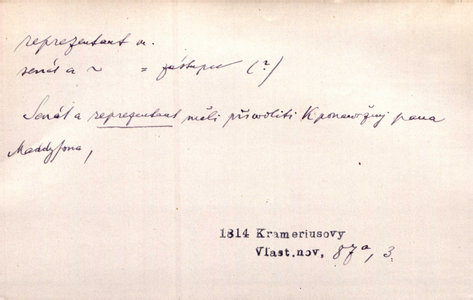 reprezentant m.
senát a ~ = zástupce (?)
Senát a reprezentant měli přiwoliti K ponawržný pana
Maddysona,
1814 Krameriusovy
Vlast.nov, 87a, 3.